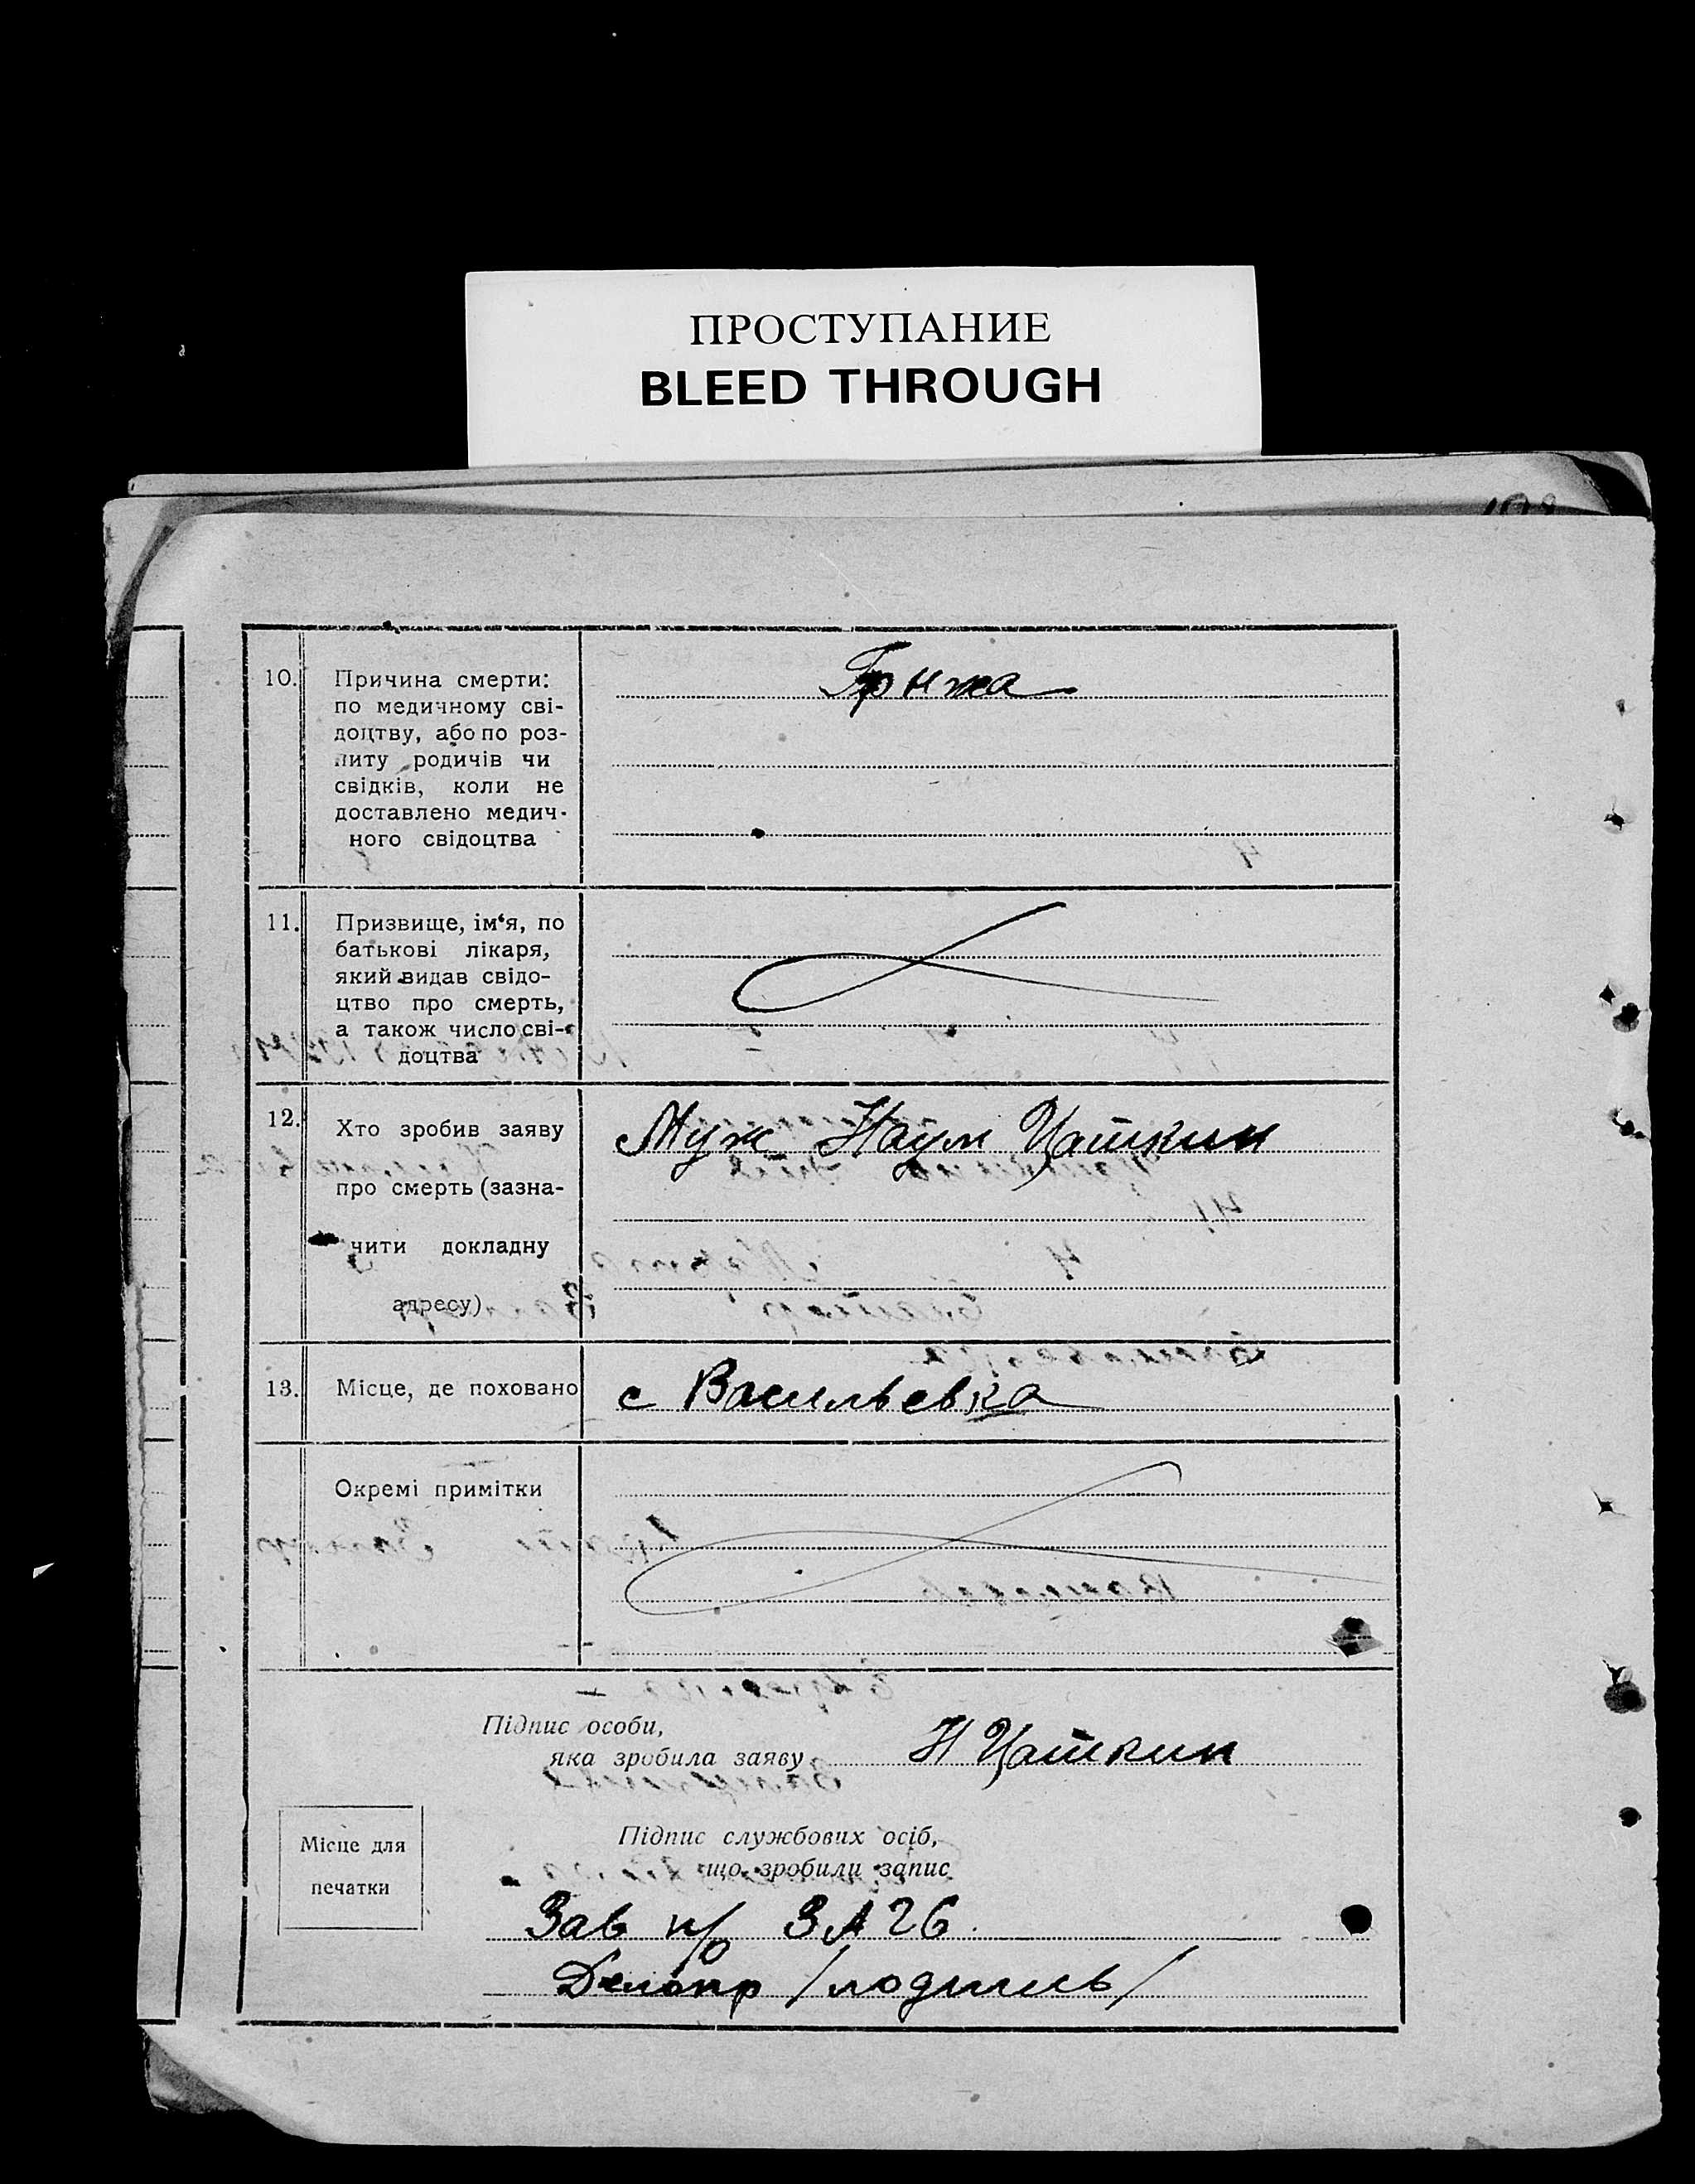 ПРОСТУПАНИЕ
BLEED THROUGH
10. Причина смерти: Грыжа
по медичному сві-
доцтву, або по роз-
питу родичів чи
свідків, коли не
доставлено медич-
ного свідоцтва
11. Призвище, ім‘я, по
батькові лікаря,
який видав свідо-
цтво про смерть,
а також число сві-
доцтва
12. Хто зробив заяву Муж Наум Цашкин
про смерть (зазна-
чити докладну
адресу)
13. Місце, де поховано с Васильевка
Окремі примітки
Підпис особи,
яка зробила заяву Н Цашкин
Підпис службових осіб,
що зробили запис
Місце для
печатки
Зав н/о ЗАГС
Делопр /подпись/